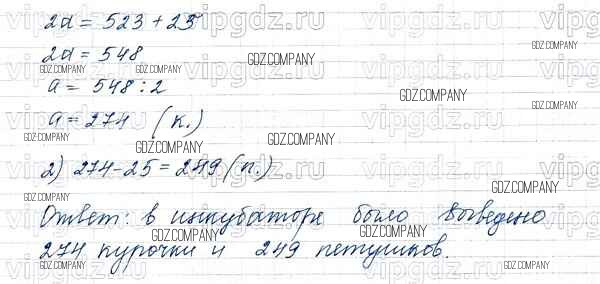 2a = 523 + 25
2a = 548
a = 548 : 2
a = 274 (к.)
2) 274 - 25 = 249 (п.)
Ответ: в инкубаторе было выведено
274 курочки и 249 петушков.
vipgdz.ru
GDZ.COMPANY